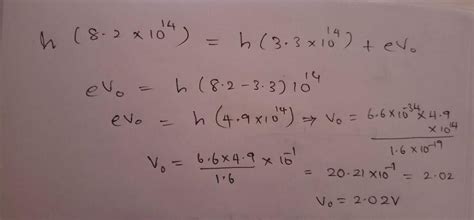 h (8.2 × 10¹⁴) = h (3.3 × 10¹⁴) + eV₀
eV₀ = h (8.2 − 3.3) 10¹⁴
eV₀ = h (4.9 × 10¹⁴) ⇒ V₀ = 6.6 × 10⁻³⁴ × 4.9 × 10¹⁴ / 1.6 × 10⁻¹⁹
V₀ = 6.6 × 4.9 / 1.6 × 10⁻¹ = 20.21 × 10⁻¹ = 2.02
V₀ = 2.02V